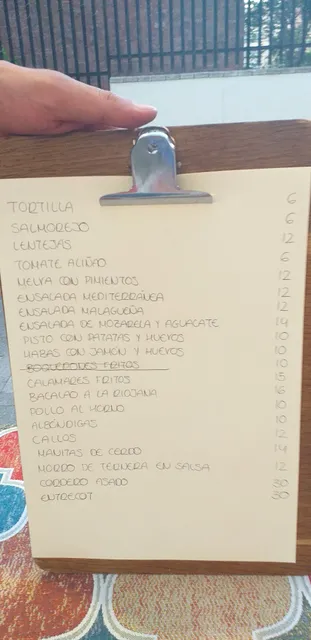 TORTILLA 6
SALMOREJO 6
LENTEJAS 12
TOMATE ALIÑAO 6
MELVA CON PIMIENTOS 12
ENSALADA MEDITERRÁNEA 12
ENSALADA MALAGUEÑA 12
ENSALADA DE MOZARELA Y AGUACATE 14
PISTO CON PATATAS Y HUEVOS 10
HABAS CON JAMÓN Y HUEVOS 10
BOQUERONES FRITOS 10
CALAMARES FRITOS 15
BACALAO A LA RIOJANA 16
POLLO AL HORNO 10
ALBÓNDIGAS 10
CALLOS 12
MANITAS DE CERDO 14
MORRO DE TERNERA EN SALSA 12
CORDERO ASADO 30
ENTRECOT 30